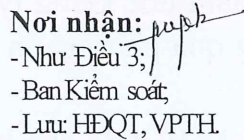 Nơi nhận:
- Như Điều 3;
- Ban Kiểm soát;
- Lưu: HĐQT, VPTH.